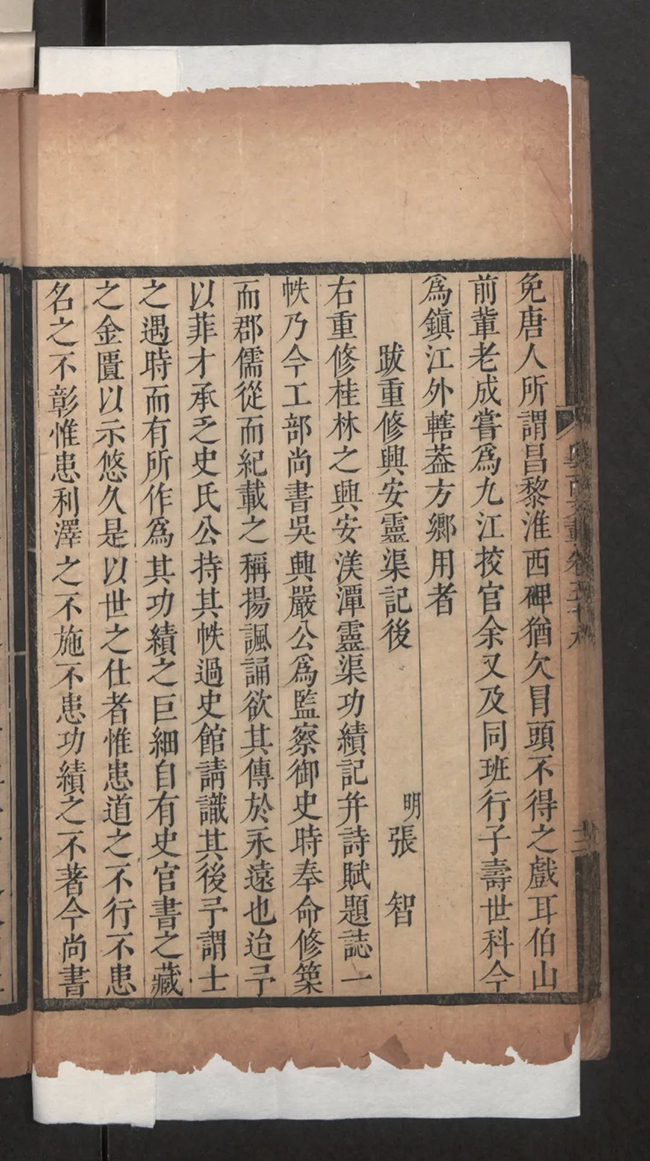 免唐人所謂昌黎淮西碑猶欠冒頭不得之戲耳伯山
前軰老成嘗爲九江挍官余又及同班行子壽世科今
爲鎮江外轄葢方鄉用者
跋重修興安靈渠記後
明張智
右重修桂林之興安渼潭靈渠功績記并詩賦題誌一
帙乃今工部尚書吳興嚴公爲監察御史時奉命修築
而郡儒從而紀載之稱揚諷誦欲其傳於永遠也迨予
以菲才承乏史氏公持其帙過史館請識其後予謂士
之遇時而有所作爲其功績之巨細自有史官書之藏
之金匱以示悠久是以世之仕者惟患道之不行不患
名之不彰惟患利澤之不施不患功績之不著今尚書